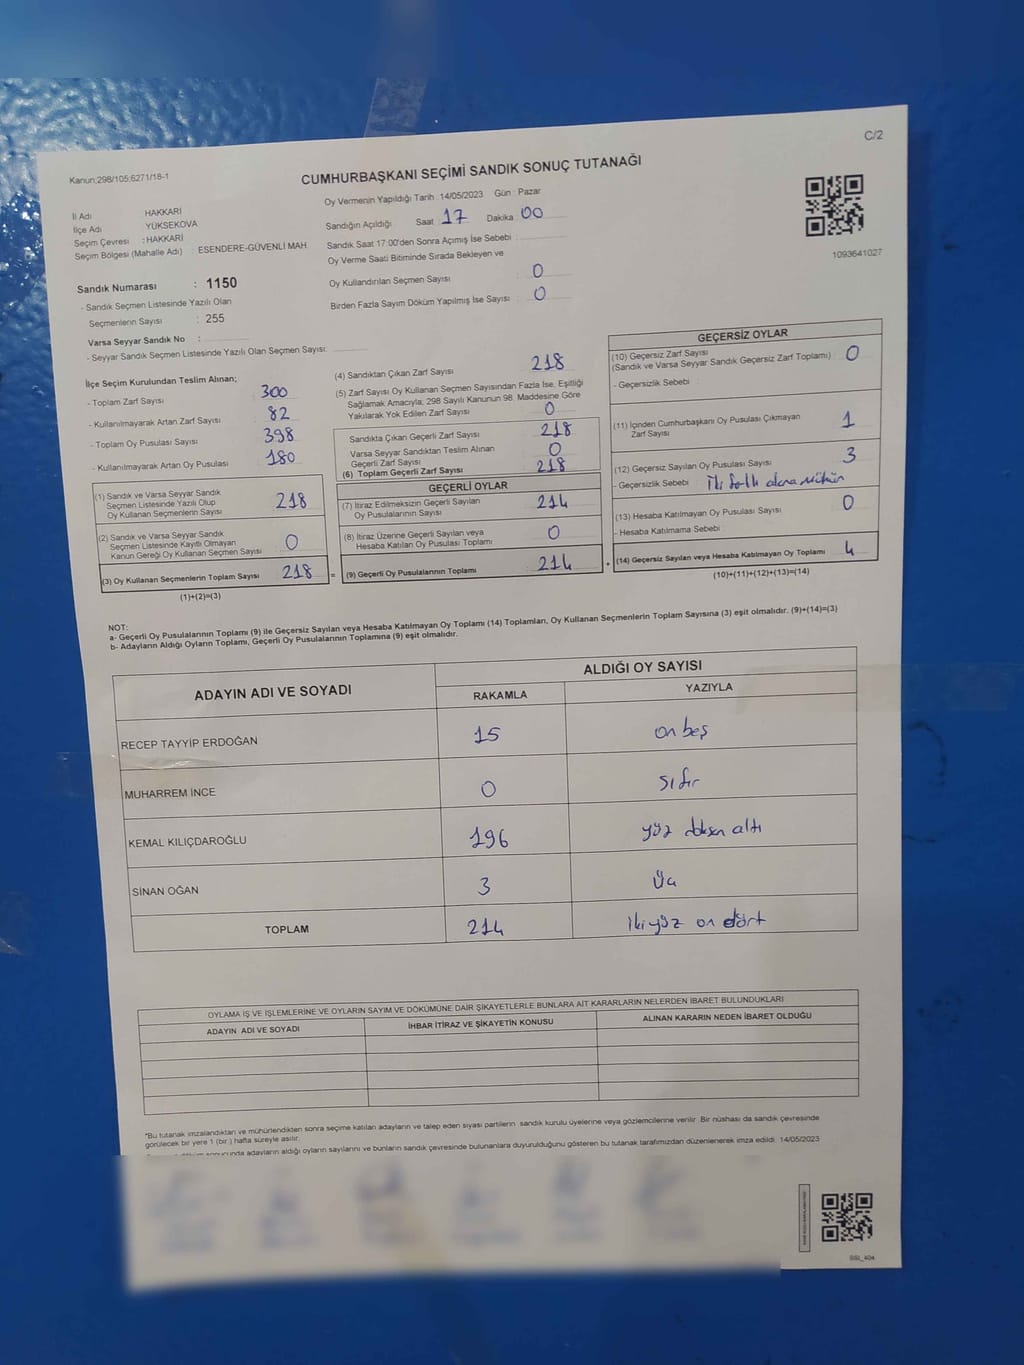 C/2
Kanun:298/105;6271/18-1
CUMHURBAŞKANI SEÇİMİ SANDIK SONUÇ TUTANAĞI
İl Adı HAKKARİ
İlçe Adı YÜKSEKOVA
Seçim Çevresi : HAKKARİ
Seçim Bölgesi (Mahalle Adı) : ESENDERE-GÜVENLİ MAH.
Oy Vermenin Yapıldığı Tarih :14/05/2023 Gün : Pazar
Sandığın Açıldığı Saat : 17 Dakika : 00
Sandık Saat 17:00'den Sonra Açımış İse Sebebi :
Oy Verme Saati Bitiminde Sırada Bekleyen ve
Oy Kullandırılan Seçmen Sayısı : 0
Birden Fazla Sayım Döküm Yapılmış İse Sayısı : 0
1093641027
Sandık Numarası : 1150
- Sandık Seçmen Listesinde Yazılı Olan
Seçmenlerin Sayısı : 255
Varsa Seyyar Sandık No :
- Seyyar Sandık Seçmen Listesinde Yazılı Olan Seçmen Sayısı:
İlçe Seçim Kurulundan Teslim Alınan;
- Toplam Zarf Sayısı 300
- Kullanılmayarak Artan Zarf Sayısı 82
- Toplam Oy Pusulası Sayısı 398
- Kullanılmayarak Artan Oy Pusulası 180
(1) Sandık ve Varsa Seyyar Sandık
Seçmen Listesinde Yazılı Olup
Oy Kullanan Seçmenlerin Sayısı 218
(2) Sandık ve Varsa Seyyar Sandık
Seçmen Listesinde Kayıtlı Olmayan
Kanun Gereği Oy Kullanan Seçmen Sayısı 0
(3) Oy Kullanan Seçmenlerin Toplam Sayısı 218 =
(1)+(2)=(3)
(4) Sandıktan Çıkan Zarf Sayısı 218
(5) Zarf Sayısı Oy Kullanan Seçmen Sayısından Fazla İse, Eşitliği
Sağlamak Amacıyla; 298 Sayılı Kanunun 98. Maddesine Göre
Yakılarak Yok Edilen Zarf Sayısı 0
Sandıkta Çıkan Geçerli Zarf Sayısı 218
Varsa Seyyar Sandıktan Teslim Alınan
Geçerli Zarf Sayısı 0
(6) Toplam Geçerli Zarf Sayısı 218
GEÇERLİ OYLAR
(7) İtiraz Edilmeksizin Geçerli Sayılan
Oy Pusulalarının Sayısı 214
(8) İtiraz Üzerine Geçerli Sayılan veya
Hesaba Katılan Oy Pusulası Toplamı 0
(9) Geçerli Oy Pusulalarının Toplamı 214 +
GEÇERSİZ OYLAR
(10) Geçersiz Zarf Sayısı
(Sandık ve Varsa Seyyar Sandık Geçersiz Zarf Toplamı) 0
- Geçersizlik Sebebi :
(11) İçinden Cumhurbaşkanı Oy Pusulası Çıkmayan
Zarf Sayısı 1
(12) Geçersiz Sayılan Oy Pusulası Sayısı 3
- Geçersizlik Sebebi : İki farklı alana mühür
(13) Hesaba Katılmayan Oy Pusulası Sayısı 0
- Hesaba Katılmama Sebebi :
(14) Geçersiz Sayılan veya Hesaba Katılmayan Oy Toplamı 4
(10)+(11)+(12)+(13)=(14)
NOT:
a- Geçerli Oy Pusulalarının Toplamı (9) ile Geçersiz Sayılan veya Hesaba Katılmayan Oy Toplamı (14) Toplamları, Oy Kullanan Seçmenlerin Toplam Sayısına (3) eşit olmalıdır. (9)+(14)=(3)
b- Adayların Aldığı Oyların Toplamı, Geçerli Oy Pusulalarının Toplamına (9) eşit olmalıdır.
ADAYIN ADI VE SOYADI ALDIĞI OY SAYISI
RAKAMLA YAZIYLA
RECEP TAYYİP ERDOĞAN 15 on beş
MUHARREM İNCE 0 sıfır
KEMAL KILIÇDAROĞLU 196 yüz doksan altı
SİNAN OĞAN 3 Üç
TOPLAM 214 İki yüz on dört
OYLAMA İŞ VE İŞLEMLERİNE VE OYLARIN SAYIM VE DÖKÜMÜNE DAİR ŞİKAYETLERLE BUNLARA AİT KARARLARIN NELERDEN İBARET BULUNDUKLARI
ADAYIN ADI VE SOYADI İHBAR İTİRAZ VE ŞİKAYETİN KONUSU ALINAN KARARIN NEDEN İBARET OLDUĞU
*Bu tutanak imzalandıktan ve mühürlendikten sonra seçime katılan adayların ve talep eden siyasi partilerin sandık kurulu üyelerine veya gözlemcilerine verilir. Bir nüshası da sandık çevresinde
görülecek bir yere 1 (bir ) hafta süreyle asılır.
sonucunda adayların aldığı oyların sayılarını ve bunların sandık çevresinde bulunanlara duyurulduğunu gösteren bu tutanak tarafımızdan düzenlenerek imza edildi. 14/05/2023
SSI_404